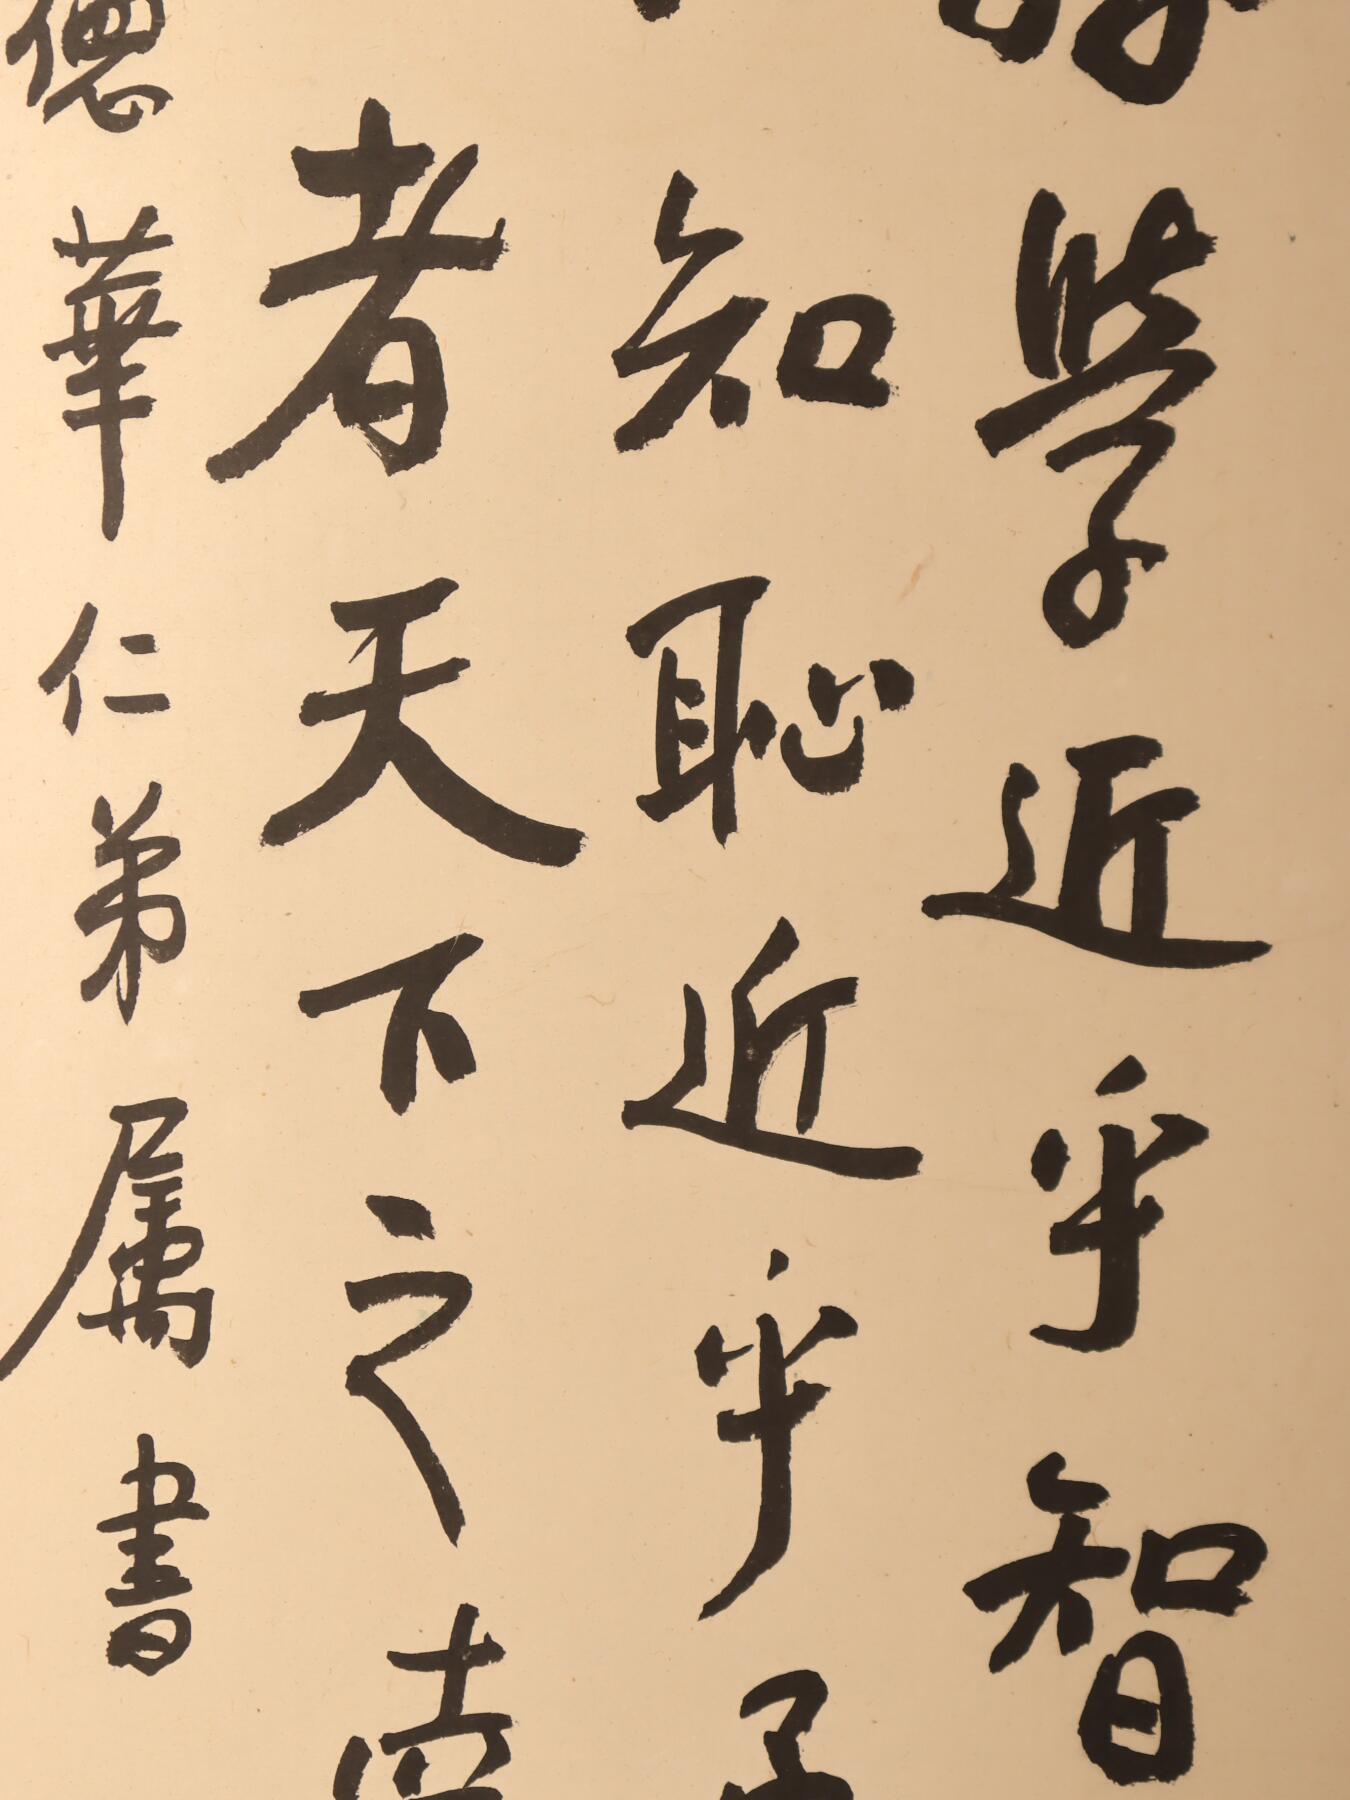 好學近乎智
知恥近乎
者天下之
德華仁弟属書